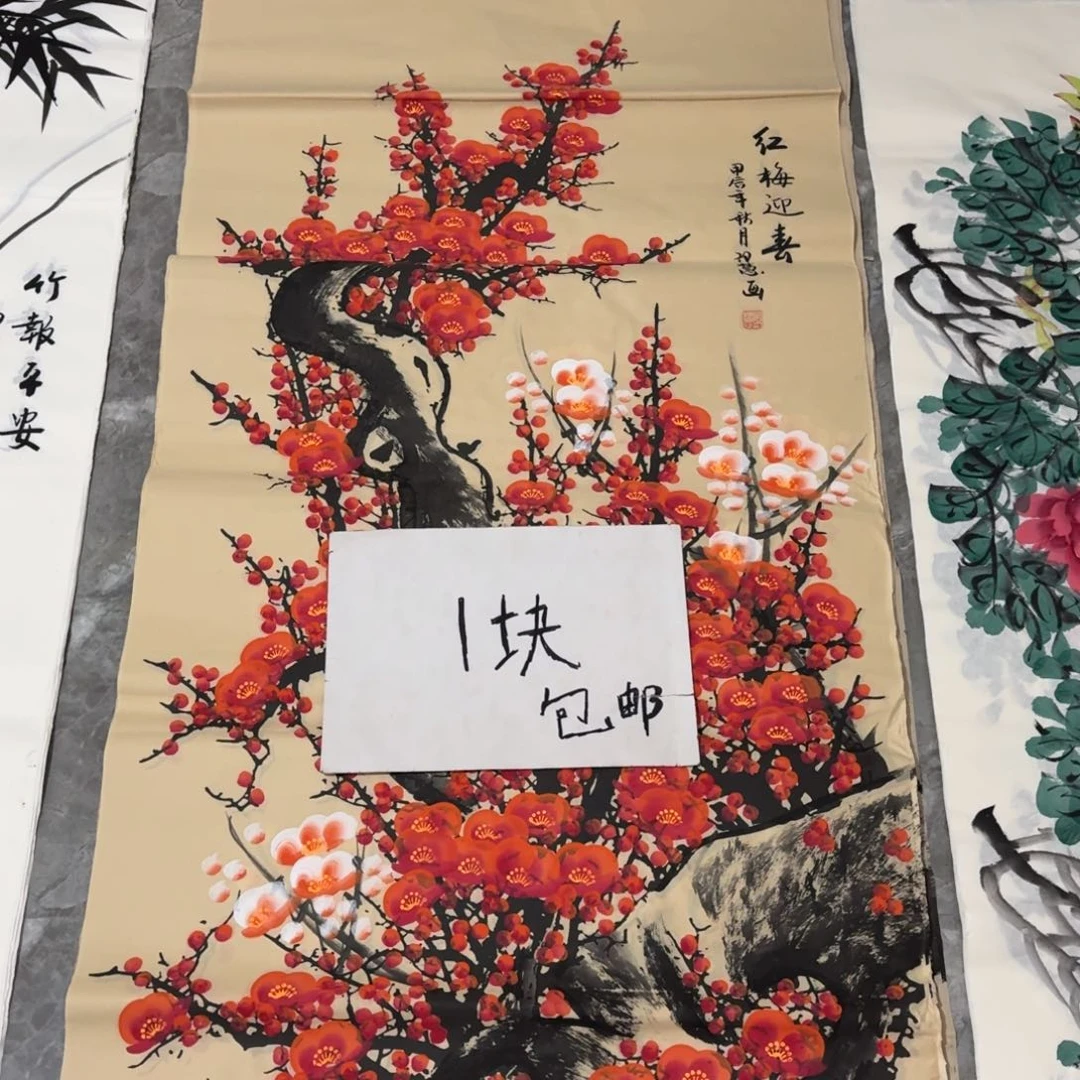 红梅迎春
甲辰年秋月
画
1块
包邮
竹報平安